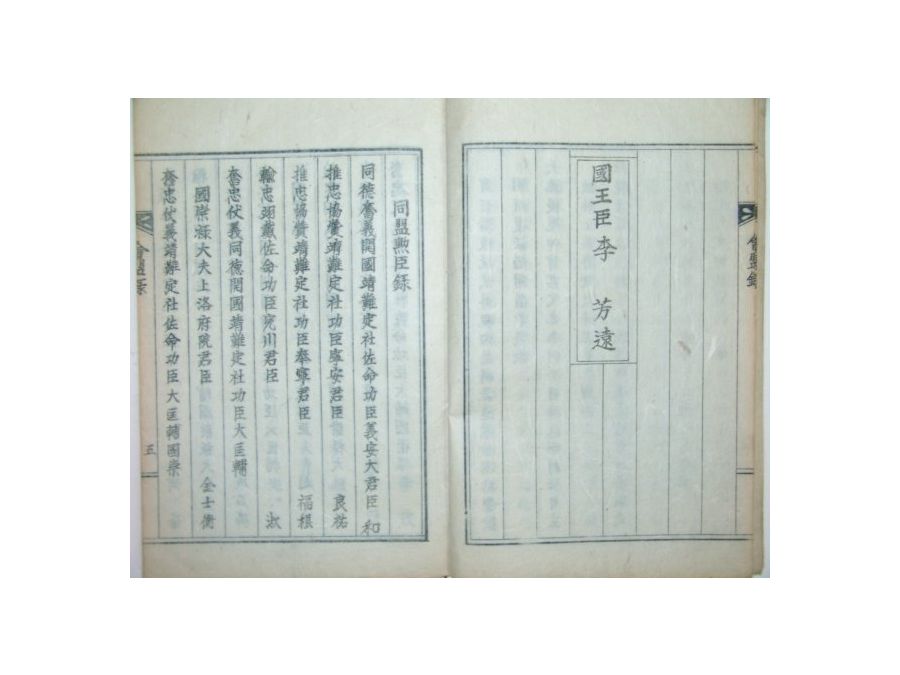 會盟錄
國王臣李 芳遠
同盟勲臣録
同德奮義開國靖難定社佐命功臣義安大君臣 和
推忠協賛靖難定社功臣寧安君臣 良祐
推忠協賛靖難定社功臣奉寧君臣 福根
輸忠翊戴佐命功臣完川君臣 淑
奮忠仗義同德開國靖難定社功臣大匡輔
國崇祿大夫上洛府院君臣 金士衡
奮忠仗義靖難定社佐命功臣大匡輔國崇
會盟錄
五